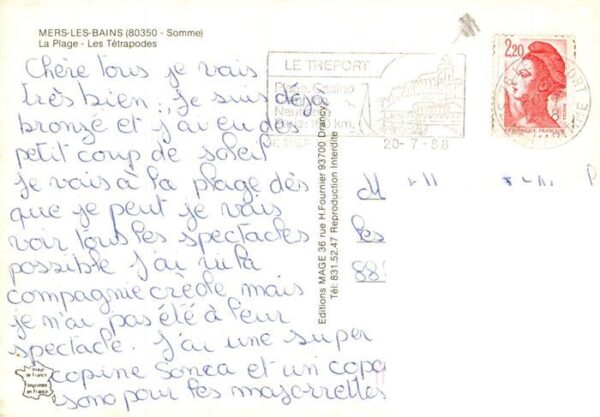 MERS-LES-BAINS (80350 - Somme)
La Plage - Les Tétrapodes
Chère tous je vais
très bien. je suis déjà
bronzé et j'ai eu des
petit coup de soleil
je vais à la plage dès
que je peut je vais
voir tous les spectacles
possible j'ai vu la
compagnie créole mais
je n'ai pas été à leur
spectacle. j'ai une super
copine Sonca et un copa
sono pour les majorettes
Image de France
Imprimée en France
Editions MAGE 36 rue H.Fournier 93700 Drancy
Tél: 831.52.47 Reproduction Interdite
LE TREPORT
Plage Casino
km.
20-7-88
2,20
REPUBLIQUE FRANÇAISE
M
les
88